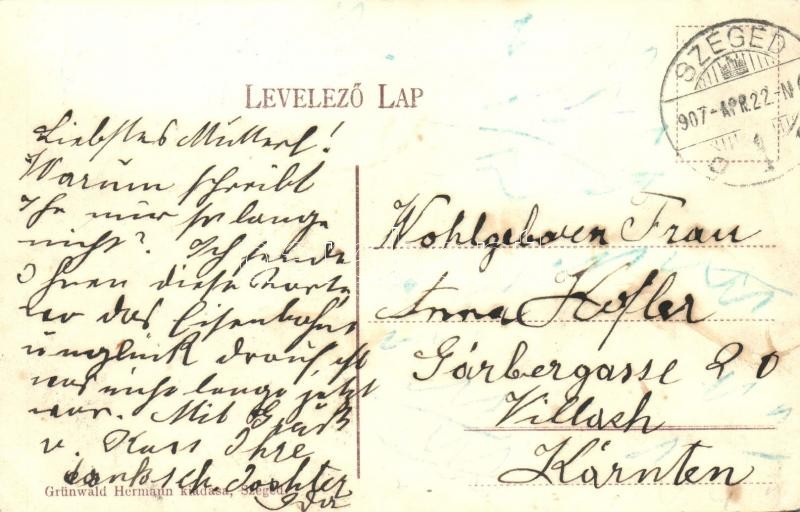 LEVELEZŐ LAP
SZEGED
907-APR.22.-N
Liebstes Mutterl!
Warum schreibt
Ihr mir so lange
nicht? Ich sende
Ihnen diese Karte
wo das Eisenbahn
unglück drauf ist
was nicht lange jetzt
war. Mit Gruß
u. Kuss Ihre
danksch. Tochter
Wohlgeboren Frau
Anna Kofler
Gärbergasse 20
Villach
Kärnten
Grünwald Hermann kiadása, Szeged